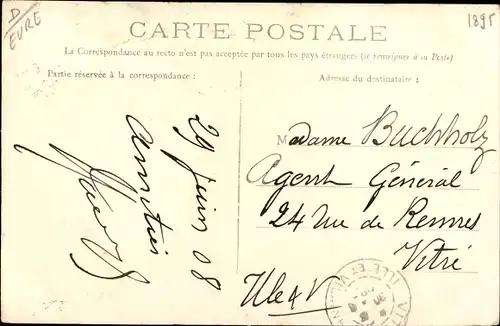 D
EURE
1895
CARTE POSTALE
La Correspondance au recto n'est pas acceptée par tous les pays étrangers (se renseigner à la Poste)
Partie réservée à la correspondance :
Adresse du destinataire :
29 juin 08
Amitiés
Madame Buchholz
Agent Général
24 Rue de Rennes
Vitré
Ille & V
ILLE ET VILAINE